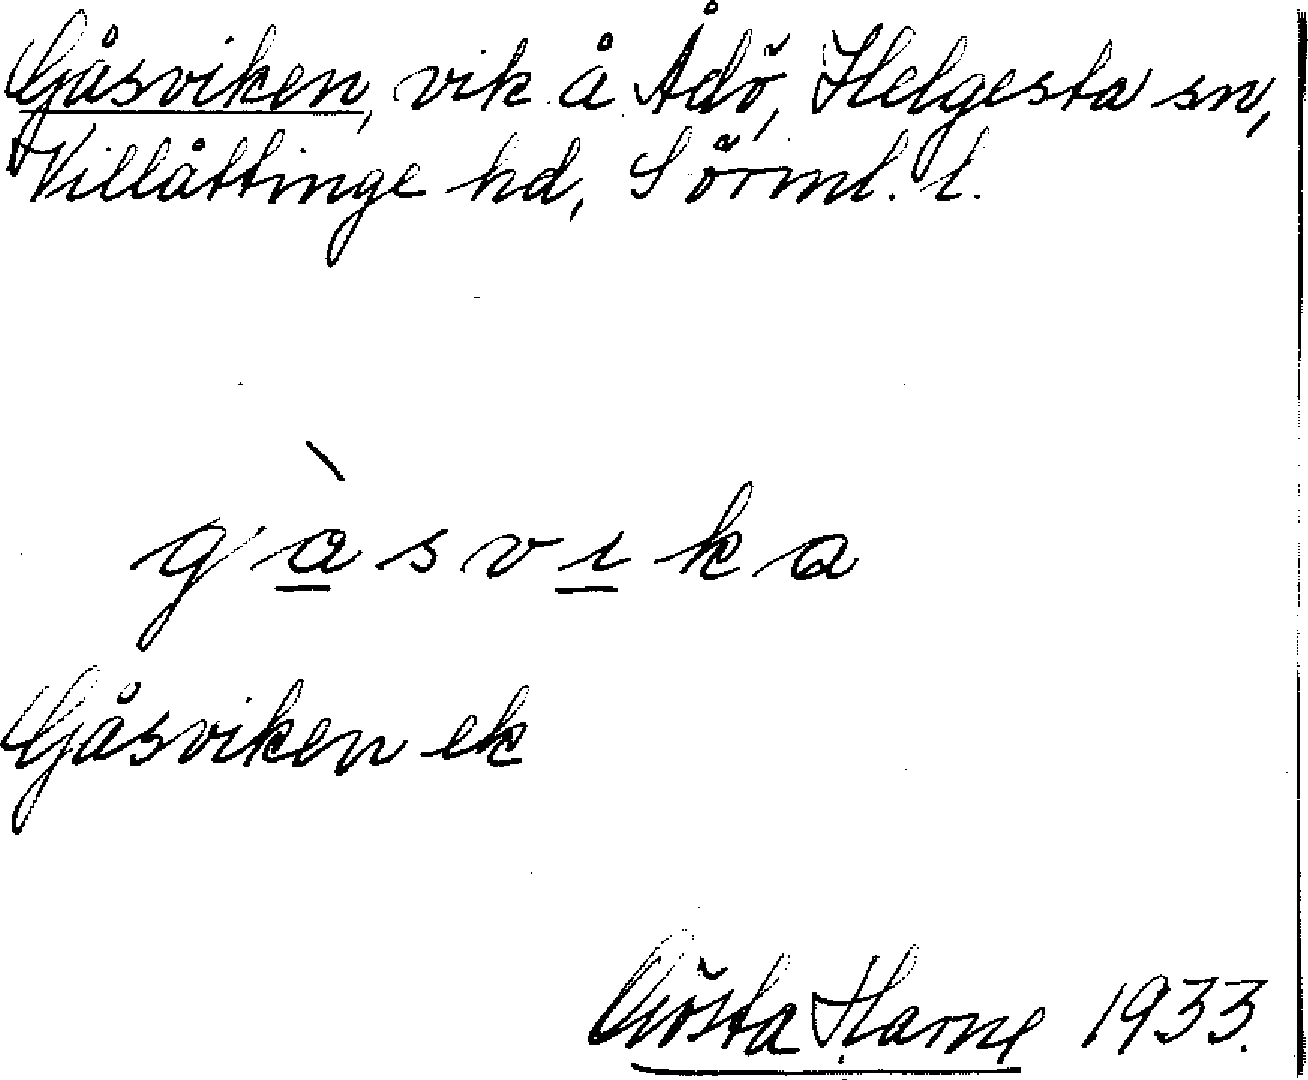 Gåsviken, vik å Ådö, Helgesta sn,
Villåttinge hd, Sörml. l.
gàsvika
Gåsviken ek
Gösta Harne 1933.